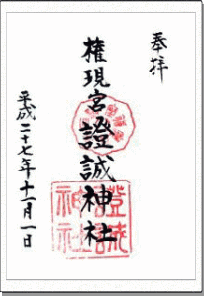 奉拝
権現宮
證誠神社
平成二十七年十一月一日
證誠
神社